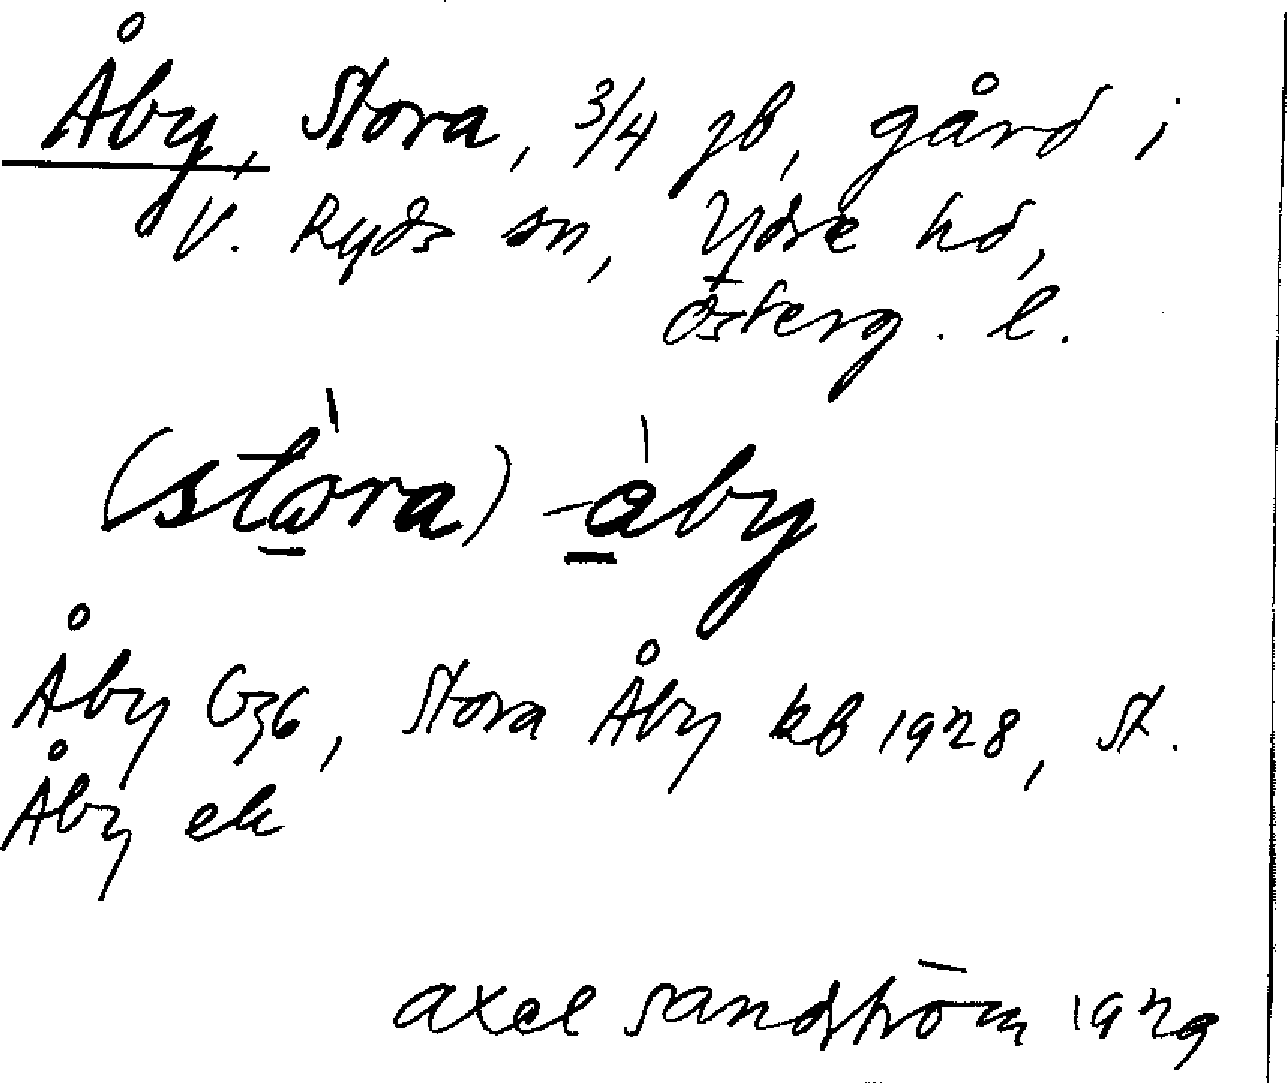 Åby, Stora, 3/4 jb, gård i
V. Ryds sn, Ydre hd,
Österg. l.
(stωra) åby
Åby G36, Stora Åby kb 1928, St.
Åby ek
Axel Sandström 1929